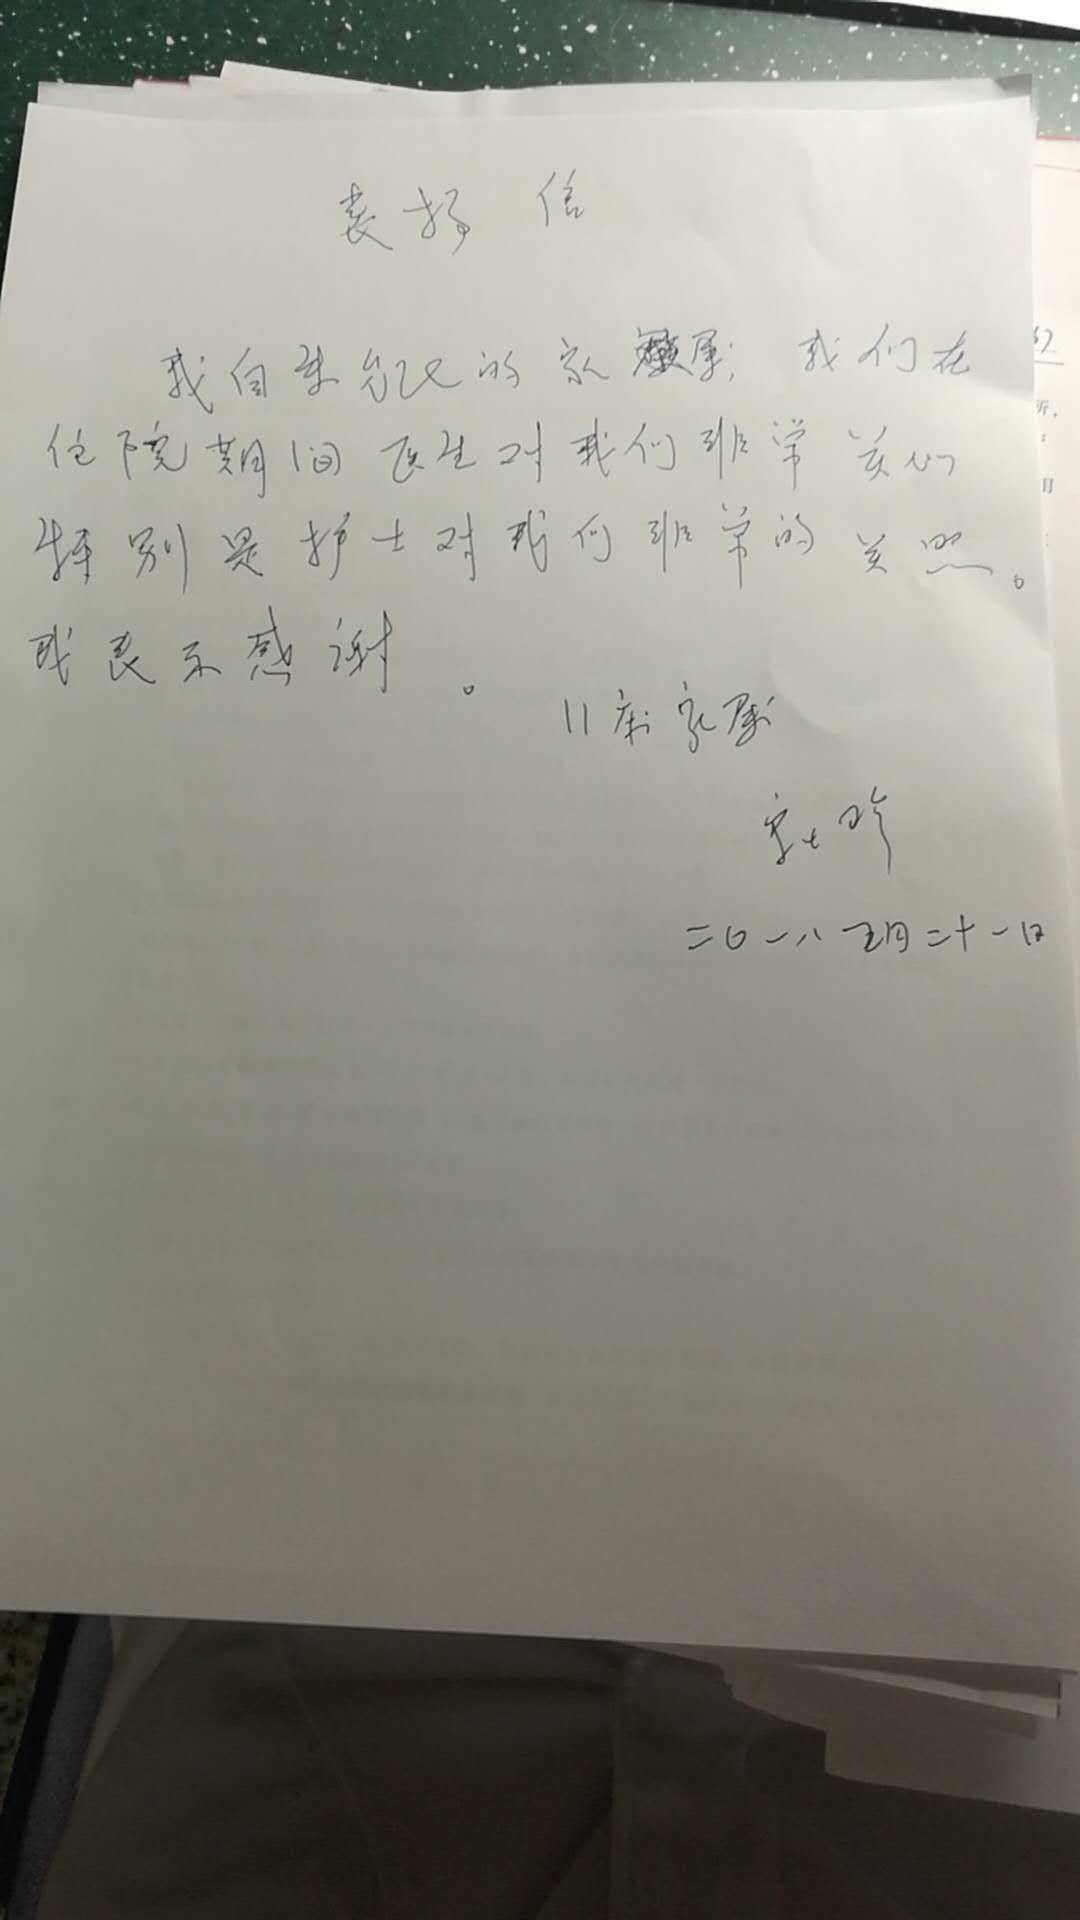 表扬 信
我自来 的家属，我们在
住院期间医生对我们非常关心
特别是护士对我们非常的关照。
我表示感谢。
11床家属
二0一八五月二十一日